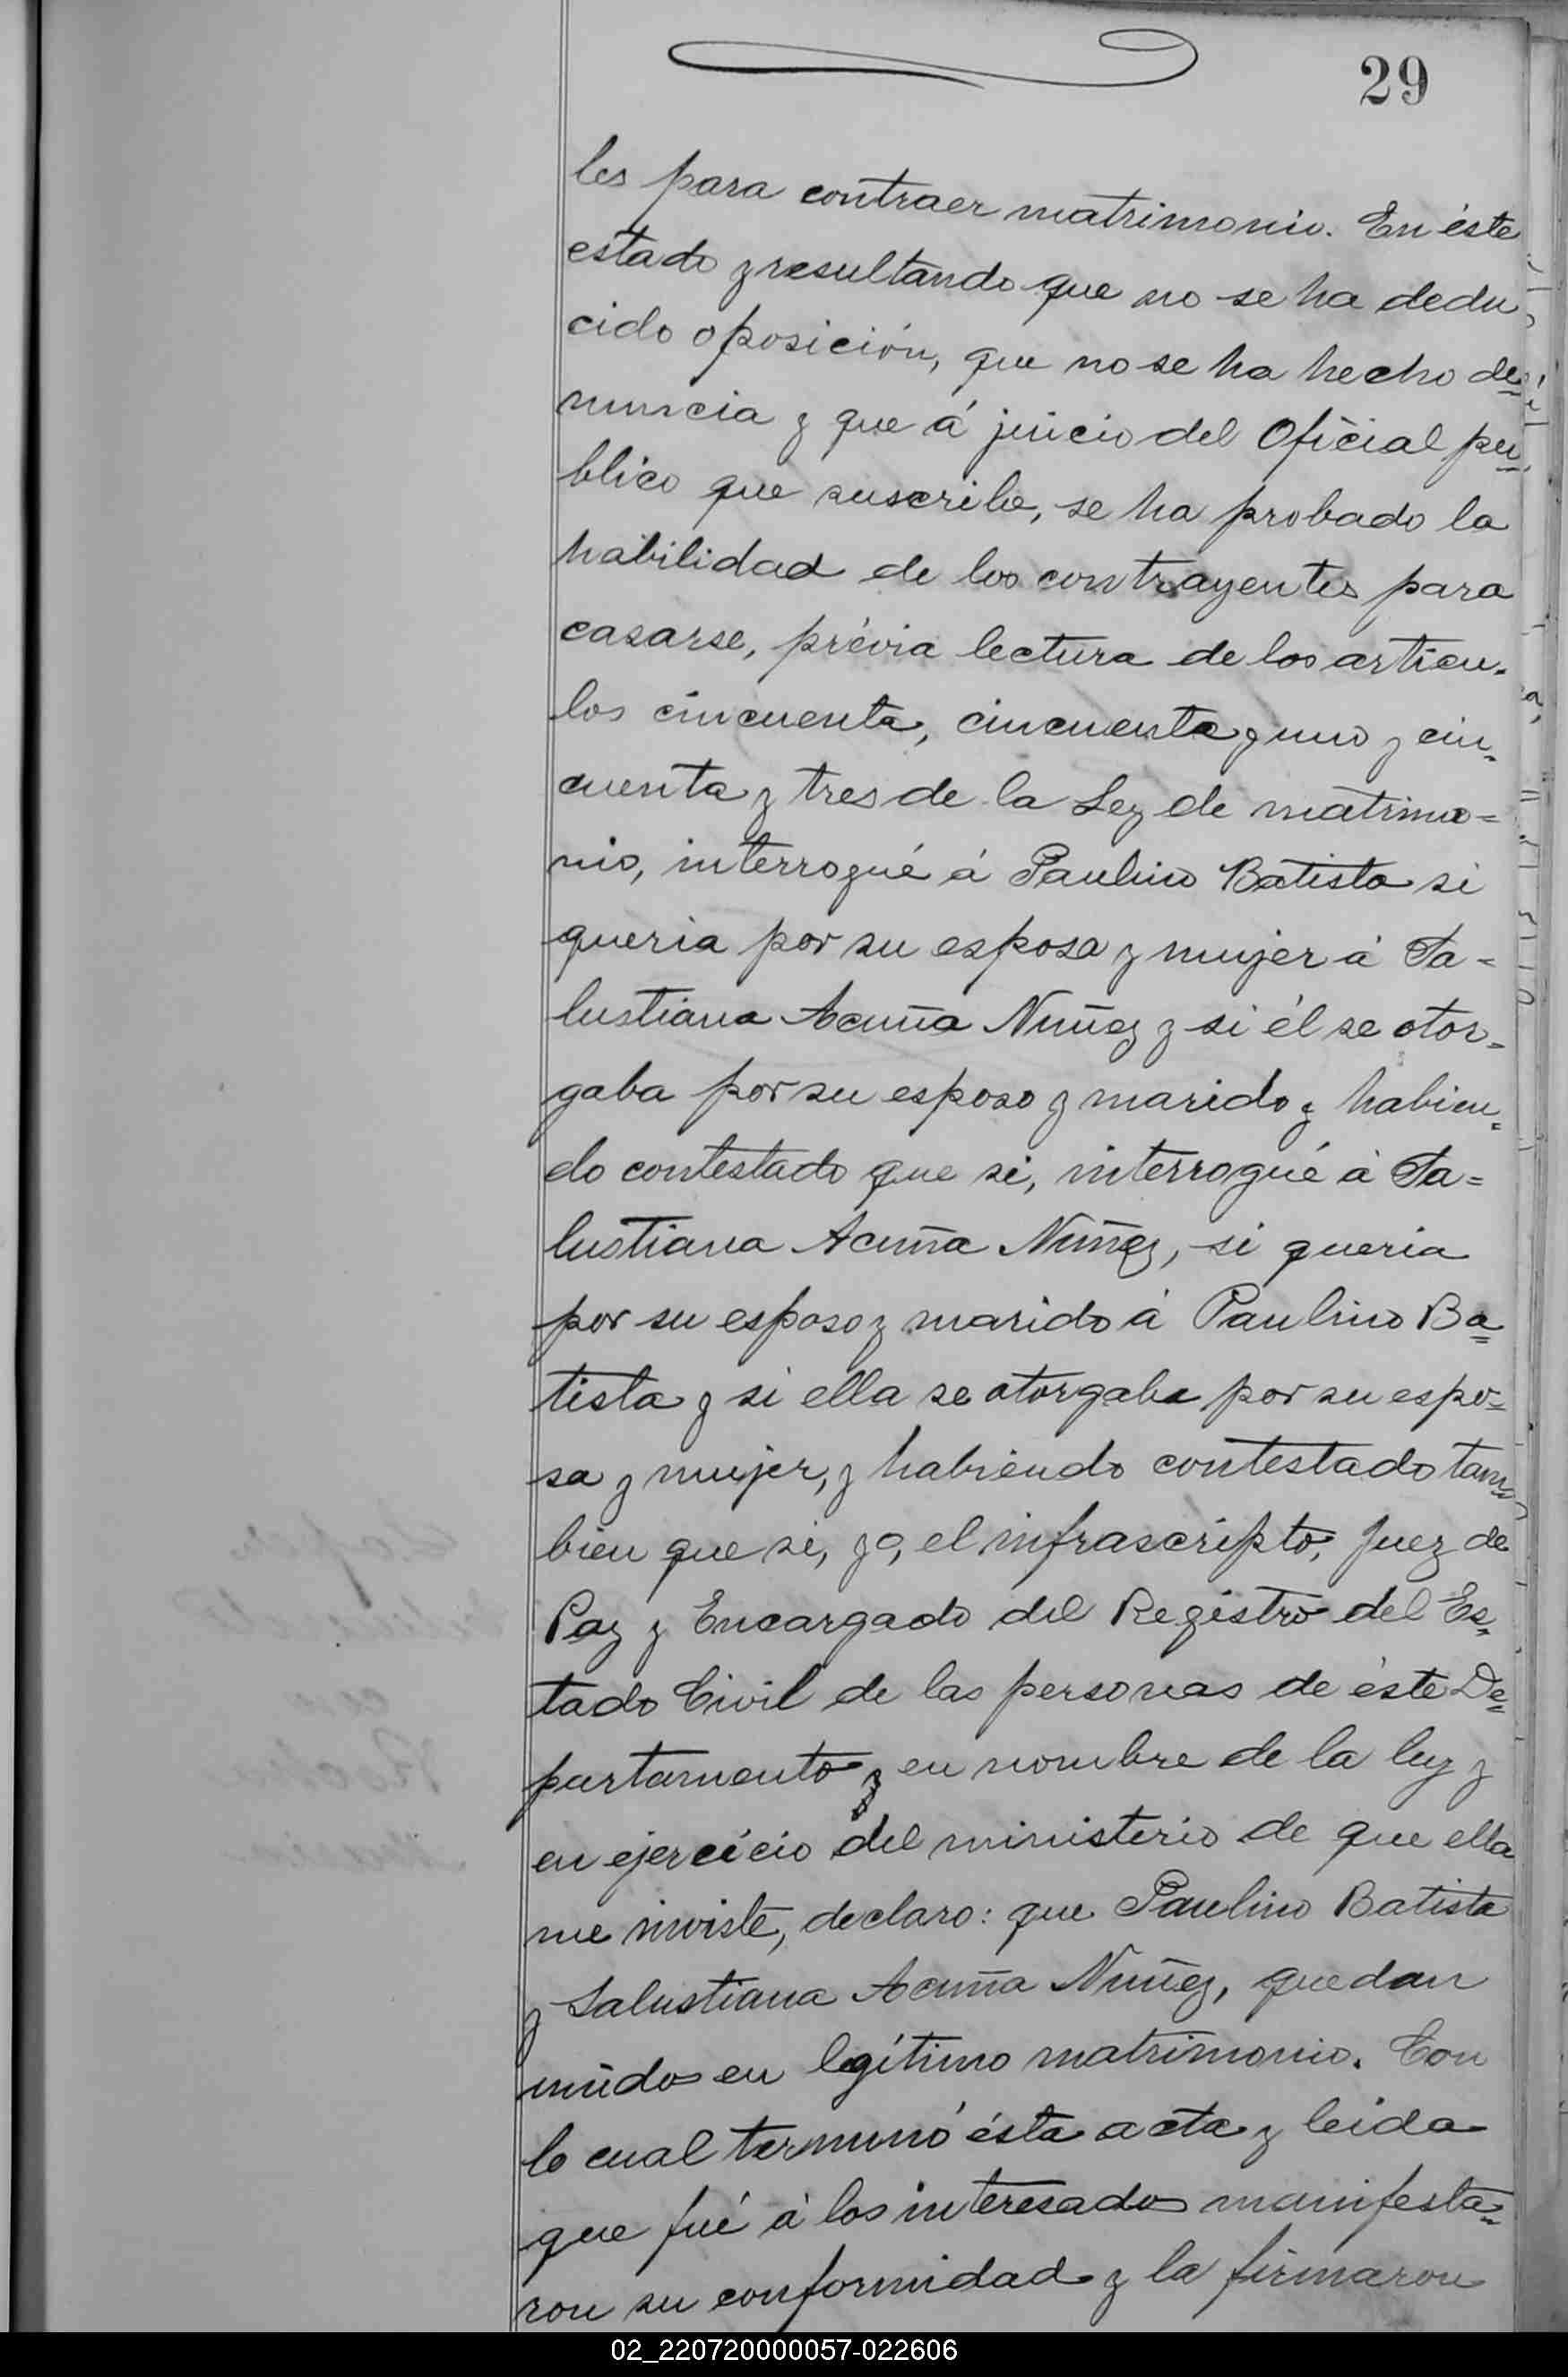 29
les para contraer matrimonio. En éste
estado y resultando que no se ha dedu
cido oposición, que no se ha hecho de=
nuncia y que á juicio del Oficial pu=
blico que suscribe, se ha probado la
habilidad de los contrayentes para
casarse, prévia lectura de los articu-
los cincuenta, cincuenta y uno y cin-
cuenta y tres de la Ley de matrimo=
nio, interrogué á Paulino Batista si
queria por su esposa y mujer á Sa=
lustiana Acuña Nuñez y si él se otor=
gaba por su esposo y marido y habien=
do contestado que si, interrogué á Sa=
lustiana Acuña Nuñez, si queria
por su esposo y marido á Paulino Ba=
tista y si ella se otorgaba por su espo=
sa y mujer, y habiendo contestado tam=
bien que si, yo, el infrascripto, Juez de
Paz y Encargado del Registro del Es=
tado Civil de las personas de éste De=
partamento y en nombre de la ley y
en ejercicio del ministerio de que ella
me inviste, declaro: que Paulino Batista
y Salustiana Acuña Nuñez, quedan
unidos en legítimo matrimonio. Con
lo cual terminó ésta acta y leida
que fué á los interesados manifesta=
ron su conformidad y la firmaron
02_220720000057-022606